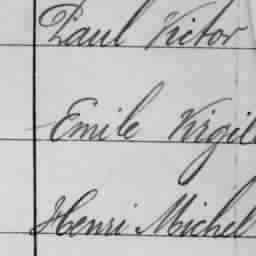 Paul Victor
Emile Virgil
Henri Michel